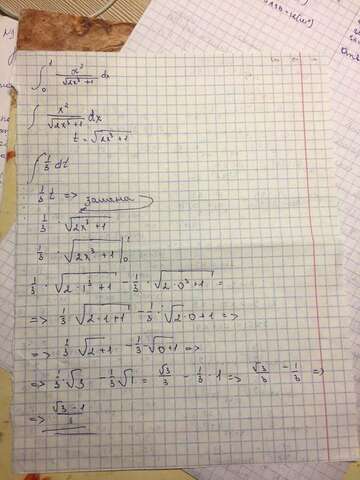 ∫₀¹ x²/√(2x³+1) dx
∫ x²/√(2x³+1) dx
t = √(2x³+1)
∫ 1/3 dt
1/3 t => замена
1/3 · √(2x³+1)
1/3 · √(2x³+1) |₀¹
1/3 · √(2·1³+1) - 1/3 · √(2·0³+1) =
=> 1/3 · √(2·1+1) - 1/3 · √(2·0+1) =>
=> 1/3 · √(2+1) - 1/3 · √(0+1) =>
=> 1/3 · √3 - 1/3 √1 = √3/3 - 1/3 · 1 => √3/3 - 1/3 =>
=> (√3 - 1)/3